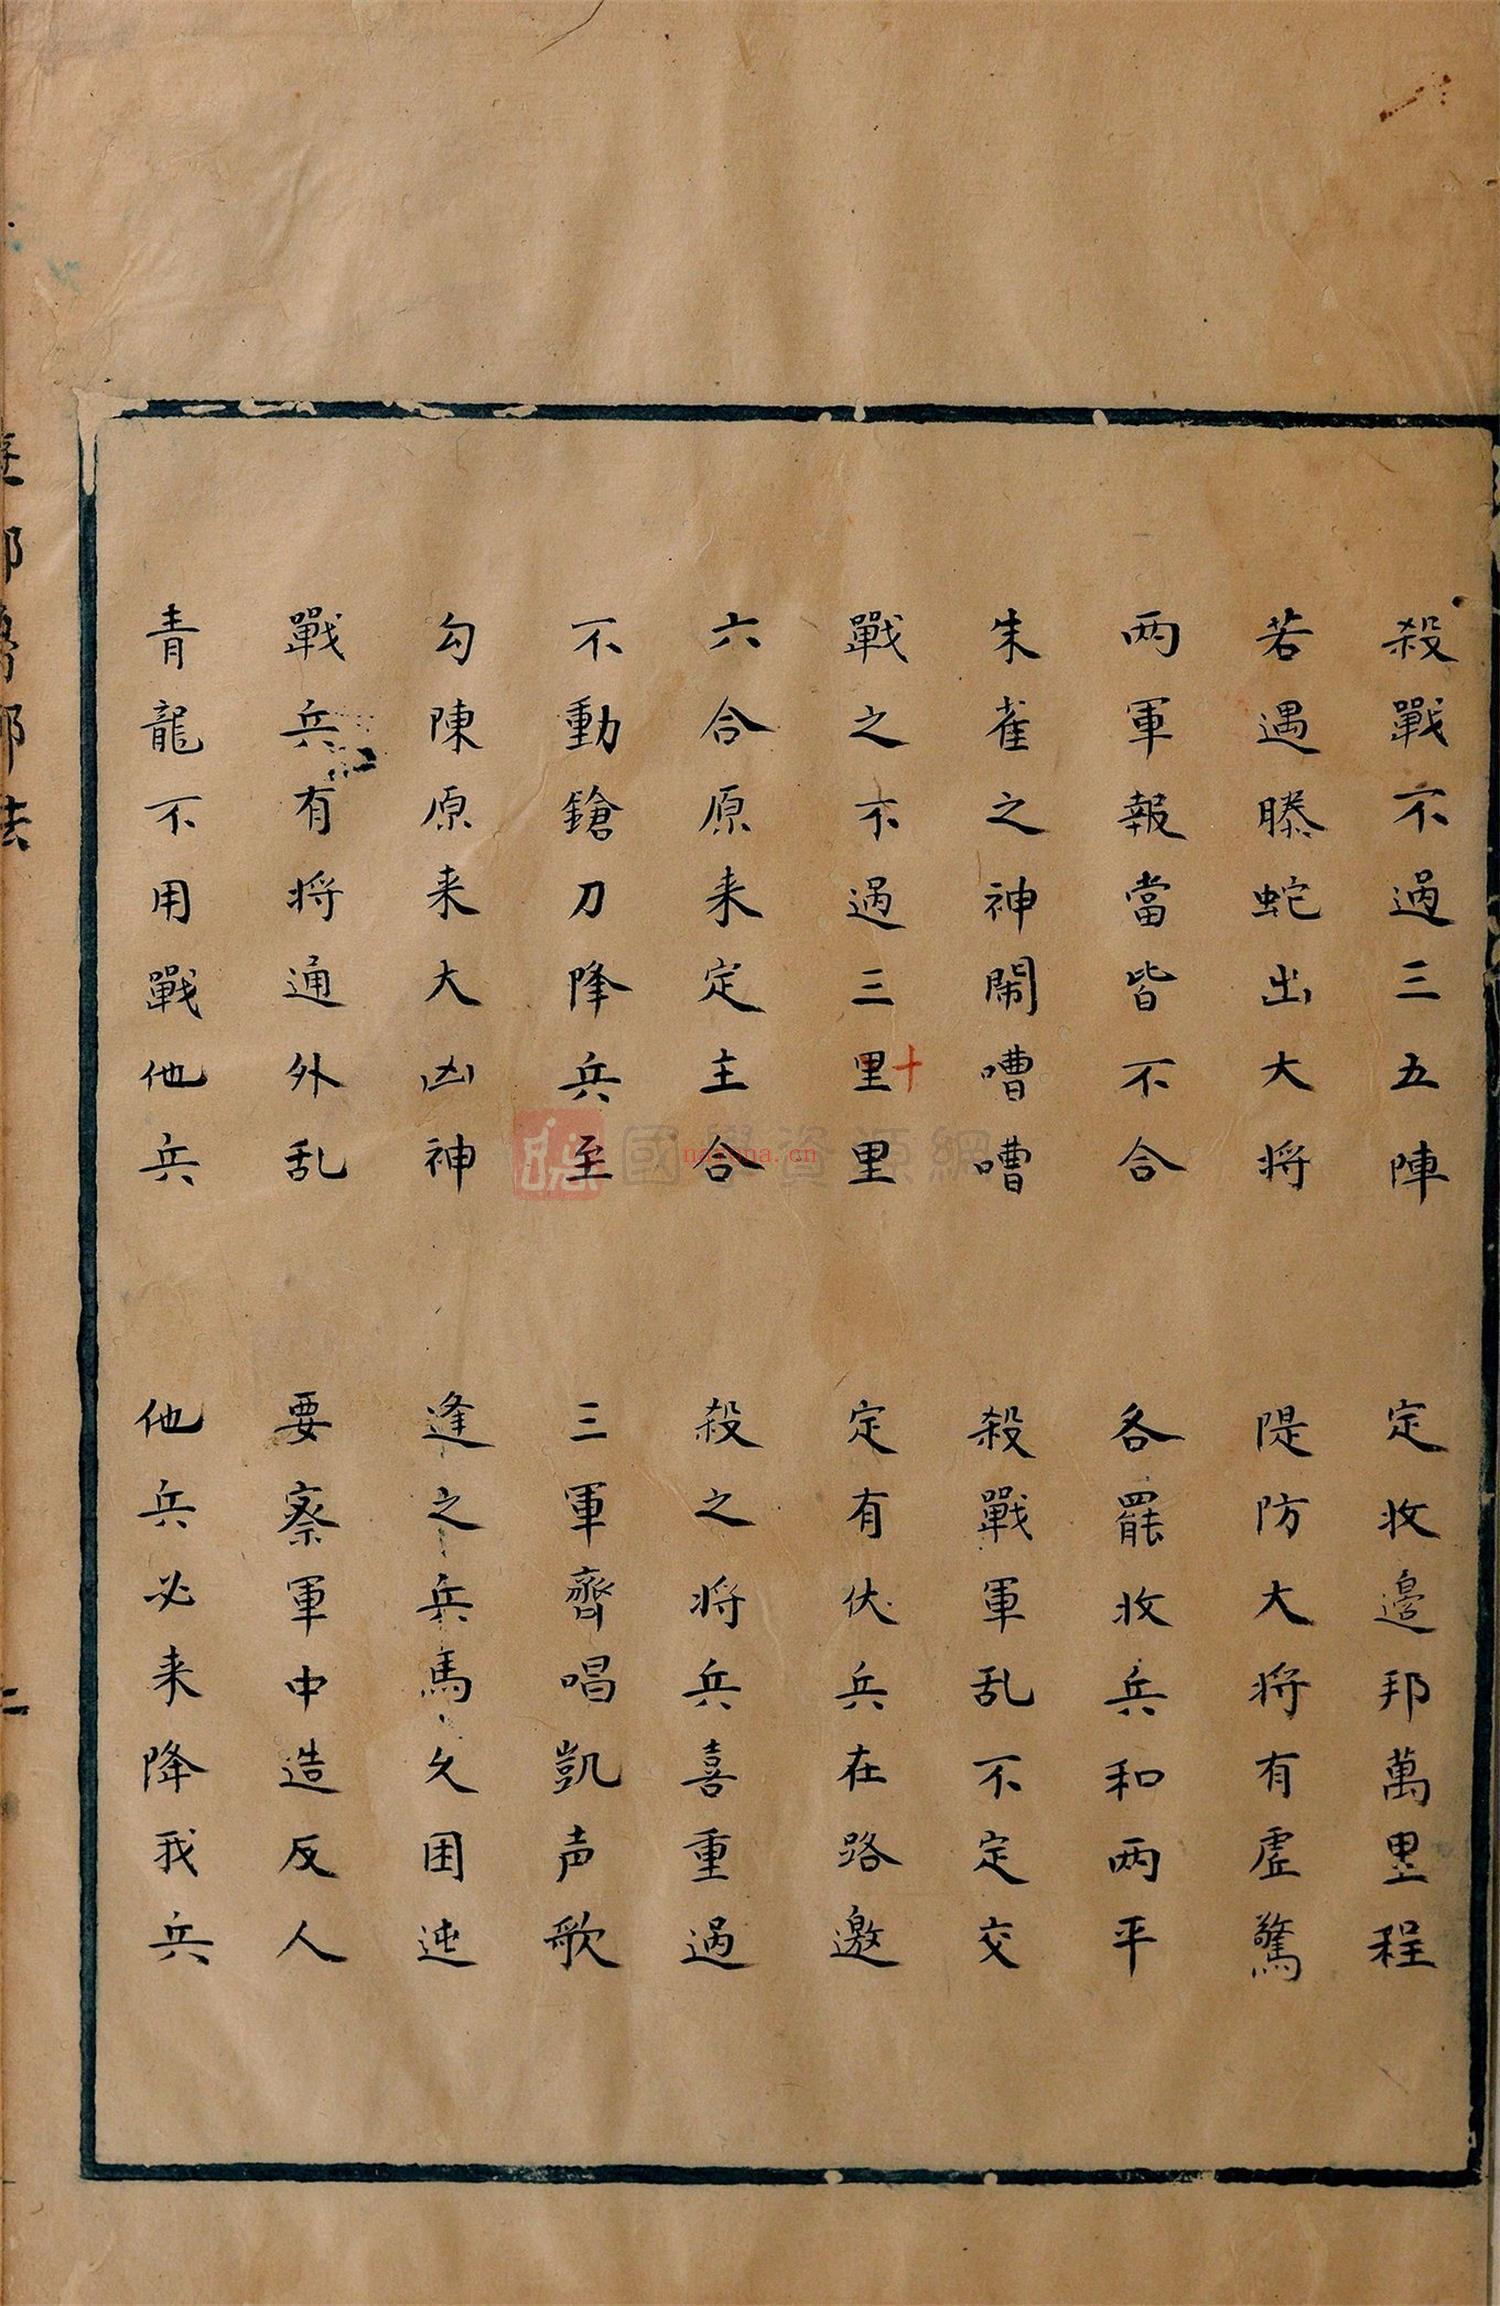 殺戰不過三五陣　定收邊邦萬里程
若遇滕蛇出大将　隄防大将有虛驚
两軍報當皆不合　各罷收兵和两平
朱雀之神鬧嘈嘈　殺戰軍乱不定交
戰之不過三里里　定有伏兵在路邀
十
六合原来定主合　殺之将兵喜重過
不動鎗刀降兵至　三軍齊唱凱声歌
勾陳原来大凶神　逢之兵馬久困迍
戰兵有将通外乱　要察軍中造反人
青龍不用戰他兵　他兵必来降我兵
二
國學資源網
nayona.cn